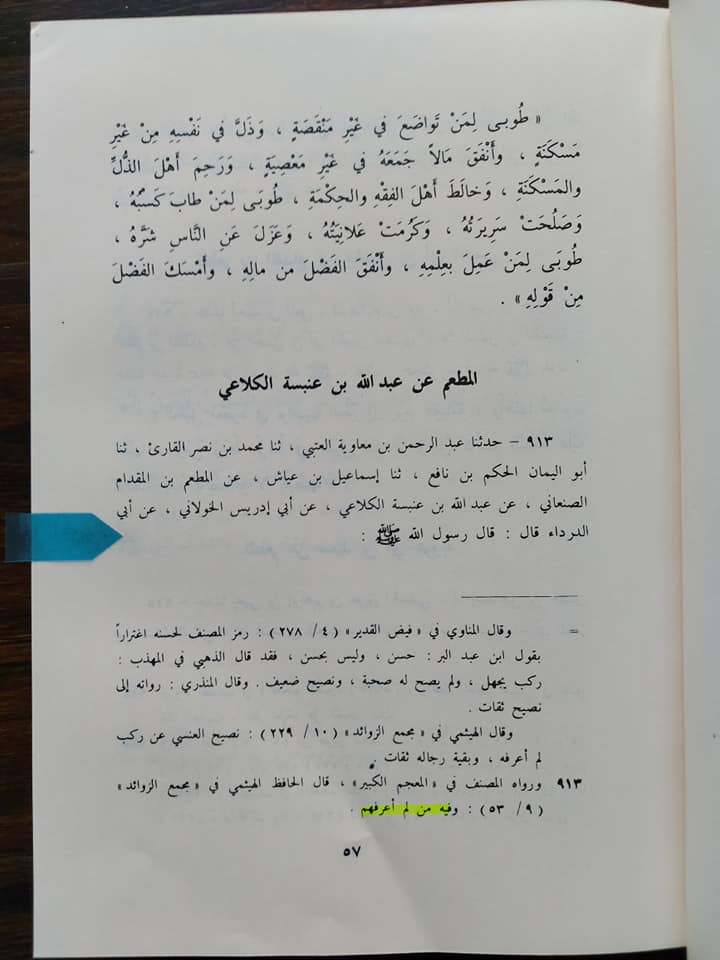 « طُوبـى لِمَنْ تَواضَعَ في غَيْرِ مَنْقَصَةٍ ، وَذَلَّ في نَفْسِهِ مِنْ غَيْرِ
مَسْكَنَةٍ ، وأَنْفَقَ مَالاً جَمَعَهُ في غَيْرِ مَعْصِيَةٍ ، وَرَحِمَ أَهْلَ الذُّلِّ
والمَسْكَنَةِ ، وَخالَطَ أَهْلَ الفِقْهِ والحِكْمَةِ ، طُوبَى لِمَنْ طابَ كَسْبُهُ ،
وَصَلُحَتْ سَرِيرَتُهُ ، وَكَرُمَتْ عَلانِيَتُهُ ، وَعَزَلَ عَنِ النَّاسِ شَرَّهُ ،
طُوبَى لِمَنْ عَمِلَ بعِلْمِهِ ، وأَنْفَقَ الفَضْلَ من مالِهِ ، وأَمْسَكَ الفَضْلَ
مِنْ قَوْلِهِ » .
المطعم عن عبد الله بن عنبسة الكلاعي
٩١٣ - حدثنا عبد الرحمن بن معاوية العتبي ، ثنا محمد بن نصر القارئ ، ثنا
أبو اليمان الحكم بن نافع ، ثنا إسماعيل بن عياش ، عن المطعم بن المقدام
الصنعاني ، عن عبد الله بن عنبسة الكلاعي ، عن أبي إدريس الخولاني ، عن أبي
الدرداء قال : قال رسول الله ﷺ :
= وقال المناوي في « فيض القدير » ( ٤ / ٢٧٨ ) : رمز المصنف لحسنه اغتراراً
بقول ابن عبد البر : حسن ، وليس بحسن ، فقد قال الذهبي في المهذب :
ركب يجهل ، ولم يصح له صحبة ، ونصيح ضعيف . وقال المنذري : رواته إلى
نصيح ثقات .
وقال الهيثمي في « مجمع الزوائد » ( ١٠ / ٢٢٩ ) : نصيح العنسي عن ركب
لم أعرفه ، وبقية رجاله ثقات .
٩١٣ ورواه المصنف في « المعجم الكبير » ، قال الحافظ الهيثمي في « مجمع الزوائد »
( ٩ / ٥٣ ) : وفيه من لم أعرفهم .
٥٧